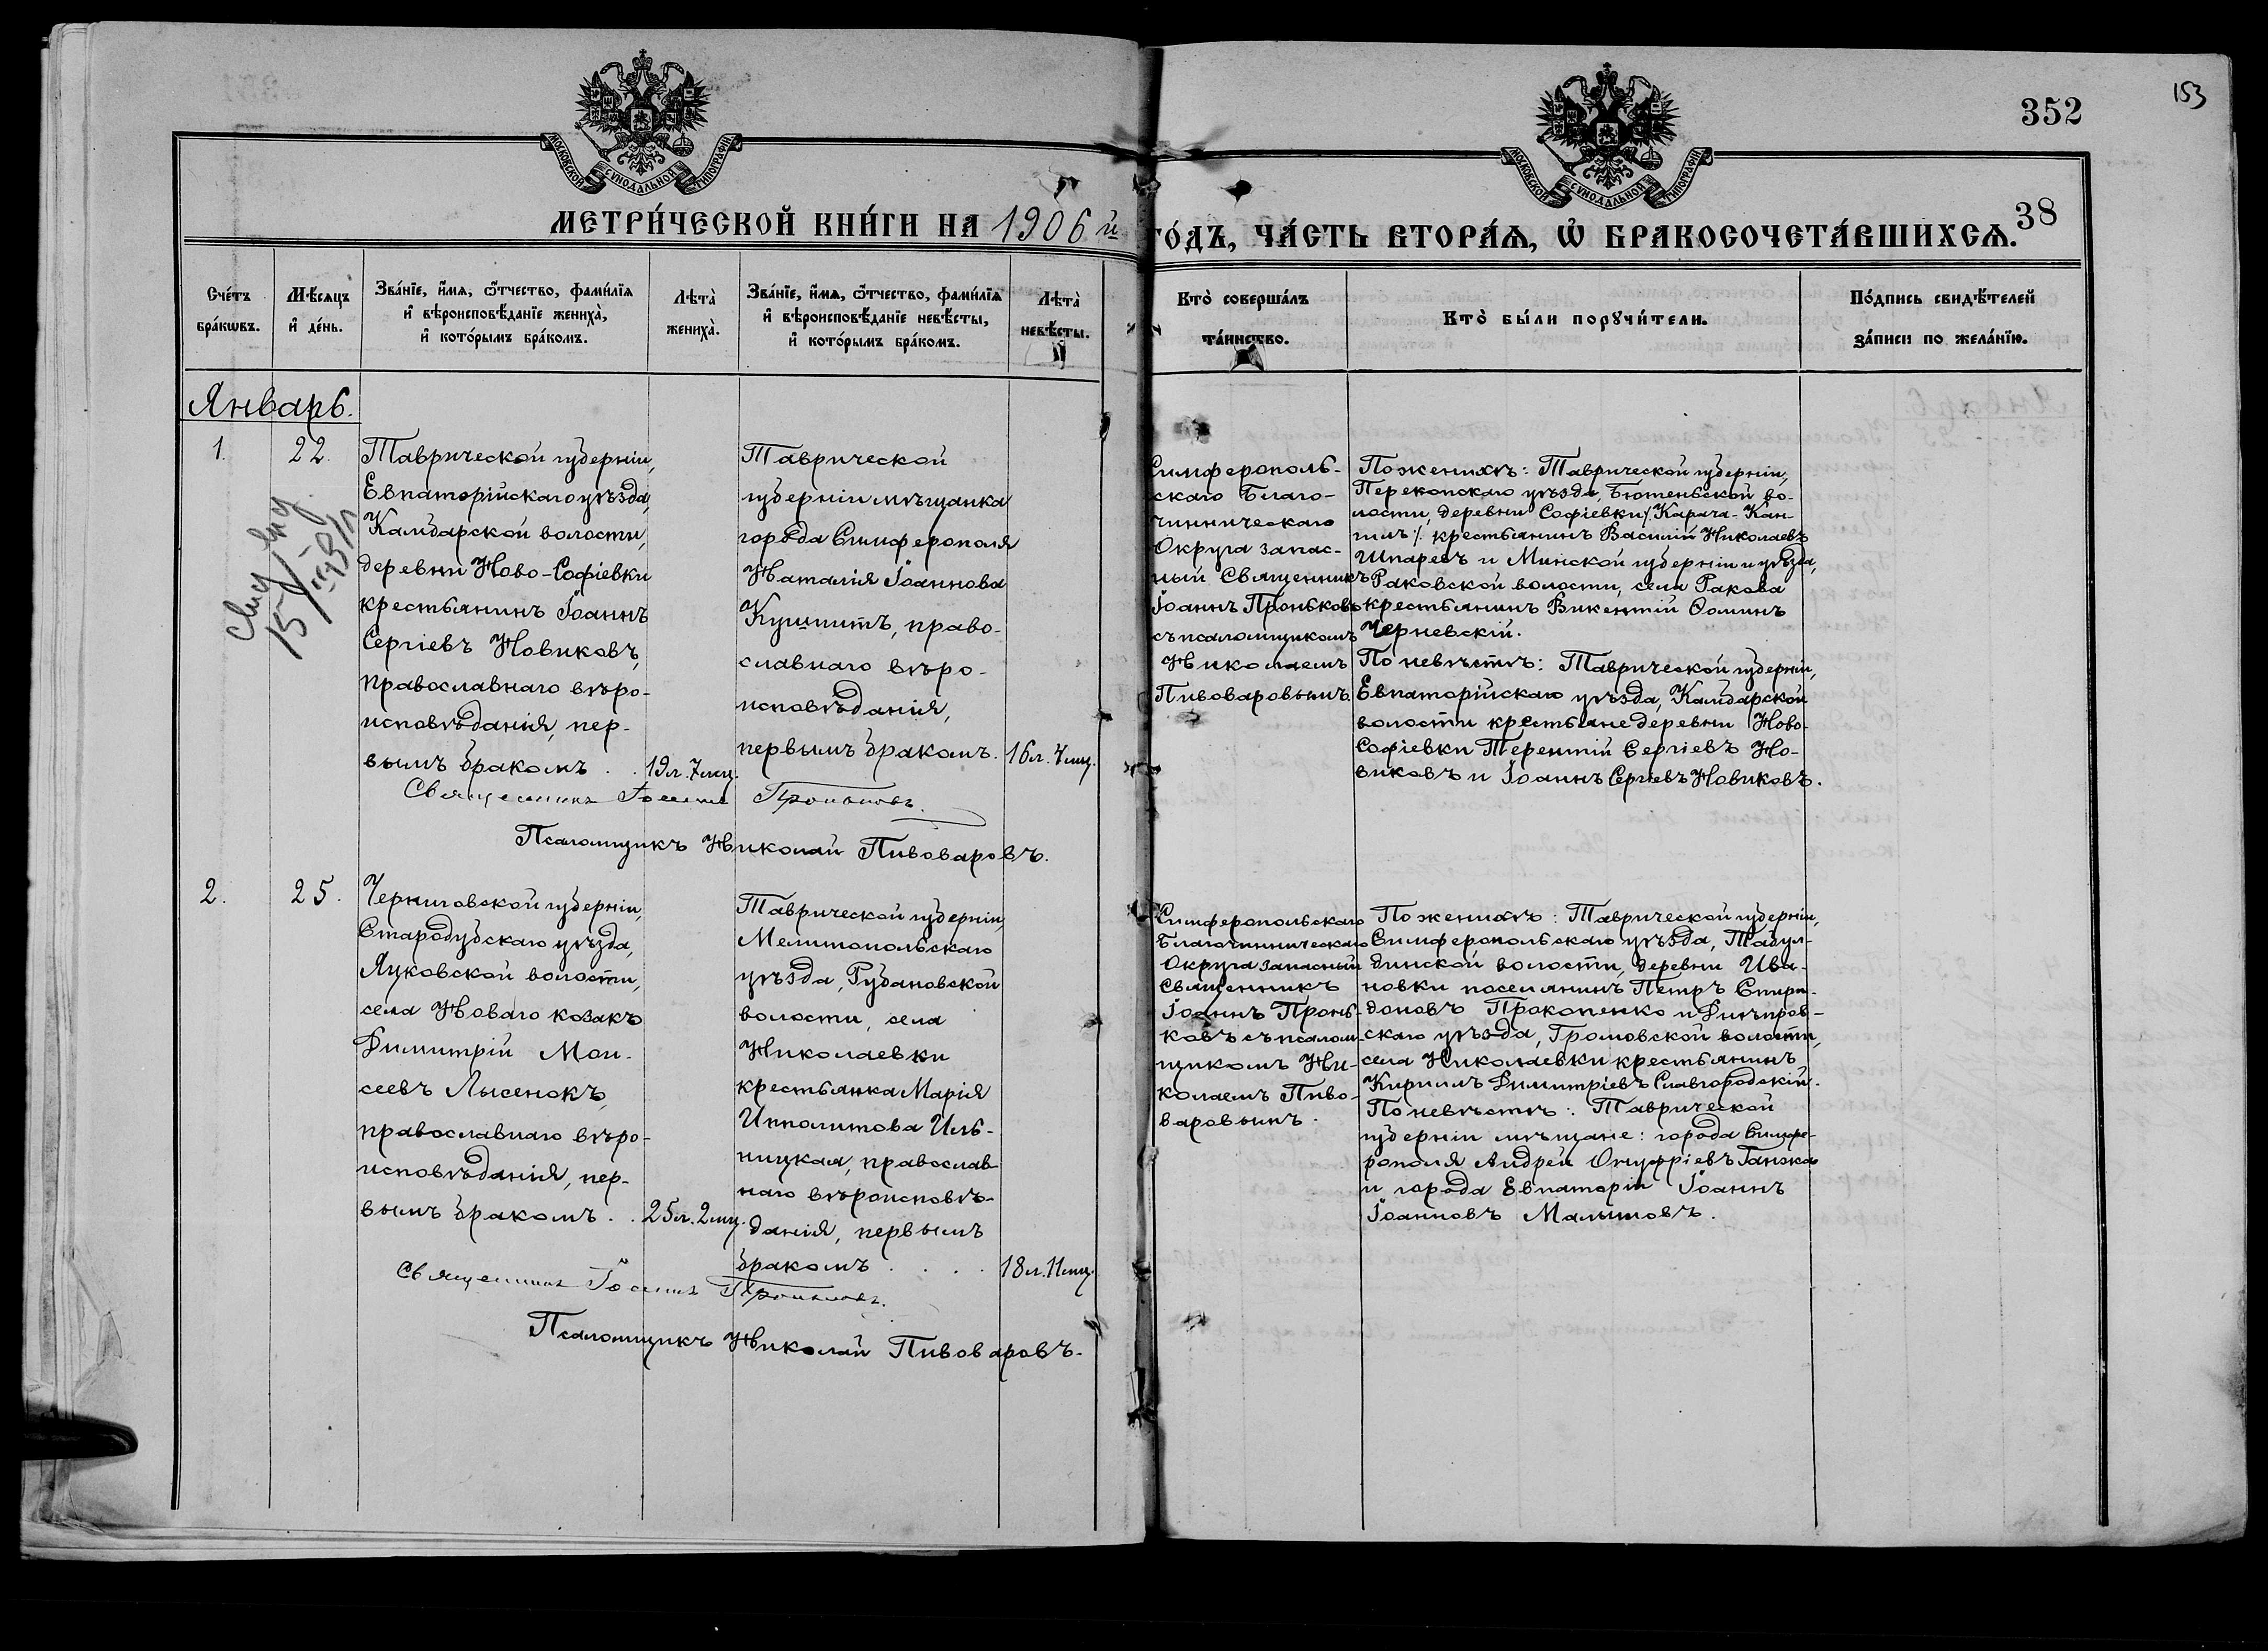 153
352
38
МОСКОВСКОЙ СѴНОДАЛЬНОЙ ТИПОГРАФІИ
МОСКОВСКОЙ СѴНОДАЛЬНОЙ ТИПОГРАФІИ
МЕТРИ́ЧЕСКОЙ КНИ́ГИ НА 1906 й
ГО́ДЪ, ЧА́СТЬ ВТОРА́Ѧ, Ѡ҆ БРАКОСОЧЕТА́ВШИХСѦ.
Сче́тъ
бра́кѡвъ.
Мѣ́сяцъ
и҆ де́нь.
Зва́нїе, и҆́мѧ, ѻ҆́тчество, фами́лїѧ
и҆ вѣроисповѣ́данїе жениха̀,
и҆ кото́рымъ бра́комъ.
Лѣта̀
жениха̀.
Зва́нїе, и҆́мѧ, ѻ҆́тчество, фами́лїѧ
и҆ вѣроисповѣ́данїе невѣ́сты,
и҆ кото́рымъ бра́комъ.
Лѣта̀
невѣ́сты.
Кто̀ соверша́лъ
та́инство.
Кто̀ бы́ли порꙋчи́тели.
По́дпись свидѣ́телей
за́писи по жела́нїю.
Январь.
1.
22.
Таврической губерніи,
Евпаторійскаго уѣзда,
Камбарской волости,
деревни Ново-Софіевки
крестьянинъ Іоаннъ
Сергіевъ Новиковъ,
православнаго вѣро-
исповѣданія, пер-
вымъ бракомъ . .
19 л. 7 мц.
Таврической
губерніи мѣщанка
города Симферополя
Наталія Іоаннова
Кушнитъ, право-
славнаго вѣро-
исповѣданія,
первымъ бракомъ.
16 л. 4 мц.
Симферополь-
скаго Благо-
чинническаго
Округа запас-
ный Священникъ
Іоаннъ Проньковъ
съ псаломщикомъ
Николаемъ
Пивоваровымъ.
По женихѣ: Таврической губерніи,
Перекопскаго уѣзда, Бютеньской во-
лости, деревни Софіевки /: Карача-Кан-
гилъ :/ крестьянинъ Василій Николаевъ
Шпаревъ и Минской губерніи и уѣзда,
Раковской волости, села Ракова
крестьянинъ Викентій Ѳоминъ
Черневскій.
По невѣстѣ: Таврической губерніи,
Евпаторійскаго уѣзда, Камбарской
волости крестьяне деревни Ново-
Софіевки Терентій Сергіевъ Но-
виковъ и Іоаннъ Сергіевъ Новиковъ.
Священникъ Іоаннъ Проньковъ.
Псаломщикъ Николай Пивоваровъ.
2.
25.
Черниговской губерніи,
Стародубскаго уѣзда,
Луковской волости,
села Новаго козакъ
Димитрій Мои-
сеевъ Лысенокъ,
православнаго вѣро-
исповѣданія, пер-
вымъ бракомъ . .
25 л. 2 мц.
Таврической губерніи,
Мелитопольскаго
уѣзда, Рубановской
волости, села
Николаевки
крестьянка Марія
Ипполитова Иль-
ницкая, православ-
наго вѣроисповѣ-
данія, первымъ
бракомъ . . . .
18 л. 11 мц.
Симферопольскаго
Благочинническаго
Округа запасный
Священникъ
Іоаннъ Пронь-
ковъ съ псалом-
щикомъ Ни-
колаемъ Пиво-
варовымъ.
По женихѣ: Таврической губерніи,
Симферопольскаго уѣзда, Табул-
динской волости, деревни Ива-
новки поселянинъ Петръ Спири-
доновъ Прокопенко и Днѣпров-
скаго уѣзда, Громовской волости,
села Николаевки крестьянинъ
Кириллъ Димитріевъ Славгородскій.
По невѣстѣ: Таврической
губерніи мѣщане: города Симфе-
рополя Андрей Онуфріевъ Ганжа
и города Евпаторіи Іоаннъ
Іоанновъ Малышовъ.
Священникъ Іоаннъ Проньковъ.
Псаломщикъ Николай Пивоваровъ.